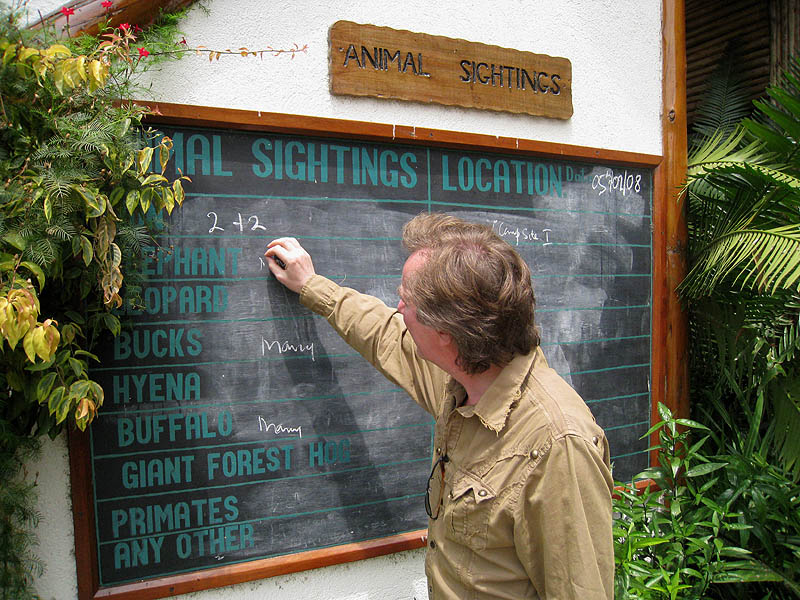 ANIMAL SIGHTINGS
MAL SIGHTINGS LOCATION Date 05/02/08
2+2 Campsite I
EPHANT
LEOPARD
BUCKS Many
HYENA
BUFFALO Many
GIANT FOREST HOG
PRIMATES
ANY OTHER